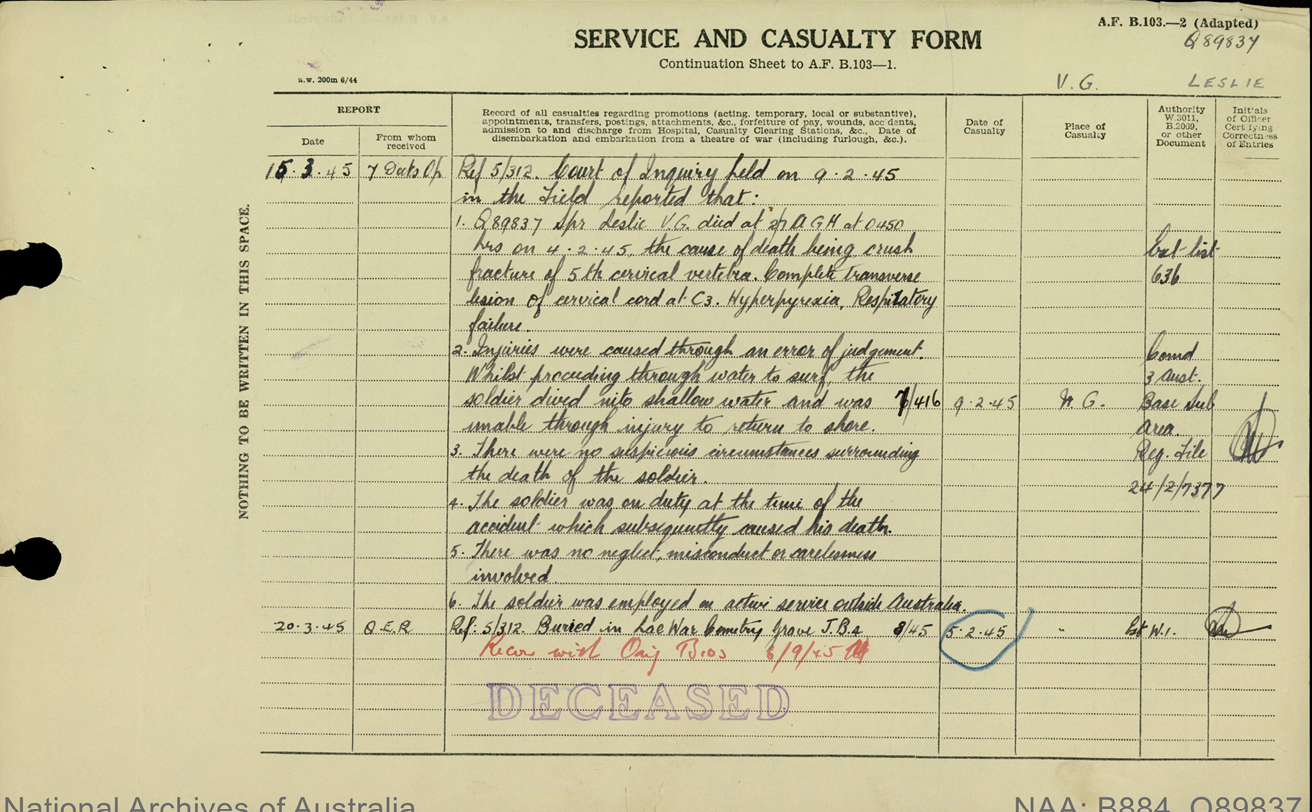 A.F. B.103.—2 (Adapted)
Q89837
SERVICE AND CASUALTY FORM
Continuation Sheet to A.F. B.103—1.
a.w. 200m 6/44
V.G. LESLIE
REPORT
Date
From whom received
Record of all casualties regarding promotions (acting, temporary, local or substantive),
appointments, transfers, postings, attachments, &c., forfeiture of pay, wounds, accidents,
admission to and discharge from Hospital, Casualty Clearing Stations, &c., Date of
disembarkation and embarkation from a theatre of war (including furlough, &c.).
Date of Casualty
Place of Casualty
Authority W.3011, B.2069, or other Document
Initials of Officer Certifying Correctness of Entries
NOTHING TO BE WRITTEN IN THIS SPACE.
15.3.45 Ref 5/312. Court of Inquiry held on 9.2.45
in the Field reported that:
1. Q89837 Spr Leslie V.G. died at 2/7 AGH at 0450
hrs on 4.2.45, the cause of death being crush
fracture of 5th cervical vertebra. Complete transverse
lesion of cervical cord at C3. Hyperpyrexia, Respiratory
failure.
list
636
2. Injuries were caused through an error of judgement.
Whilst proceeding through water to surf, the
soldier dived into shallow water and was 7/416 9.2.45 N.G.
unable through injury to return to shore.
Comd
3 Aust.
Base Sub
Area
Reg. File
24/2/7377
3. There were no suspicious circumstances surrounding
the death of the soldier.
4. The soldier was on duty at the time of the
accident which subsequently caused his death.
5. There was no neglect, misconduct or carelessness
involved.
6. The soldier was employed on active service outside Australia.
20.3.45 Q.E.R. Ref. 5/312. Buried in Lae War Cemetry Grave J.B.2 8/45 5.2.45 " W.1.
with Orig 6/9/45
DECEASED
National Archives of Australia
NAA: B884, Q89837